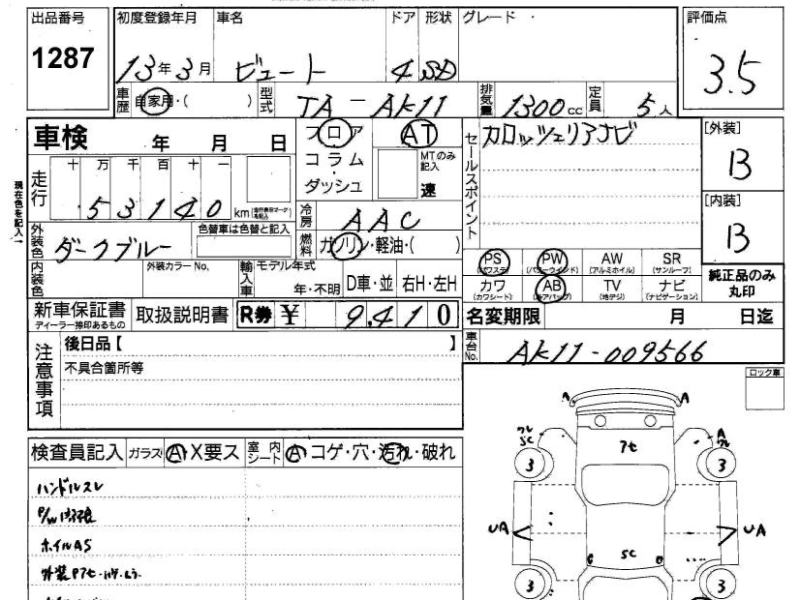 出品番号 初度登録年月 車名 ドア 形状 グレード 評価点
1287 13年3月 ビュート 4 SD 3.5
車歴 自家用・( ) 型式 TA-AK11 排気量 1300cc 定員 5人
車検 年 月 日 フロア AT セールスポイント カロッツェリアナビ [外装]
走行 十 万 千 百 十 一 コラム MTのみ記入 B
・
53140 km ダッシュ 速 [内装]
現在色を記入→ 冷房 AAC B
外装色 ダークブルー 色替車は色替と記入 燃料 ガソリン・軽油・( )
PS PW AW SR
(パワステ) (パワーウインド) (アルミホイル) (サンルーフ)
内装色 外装カラー No. 輸入車 モデル年式 カワ AB TV ナビ 純正品のみ
年・不明 D車・並 右H・左H (カワシート) (エアバッグ) (地デジ) (ナビゲーション) 丸印
新車保証書 取扱説明書 R券 ¥ 9,410 名変期限 月 日迄
ディーラー捺印あるもの
車台No. AK11-009566
注意事項 後日品【 】
不具合箇所等 ロック車
A A
検査員記入 ガラス A X要ス 室内シート A コゲ・穴・汚れ・破れ
ワレ SC アセ A ワレ
3 3
ハンドルスレ
ホイルAS
UA UA
SC
3 3